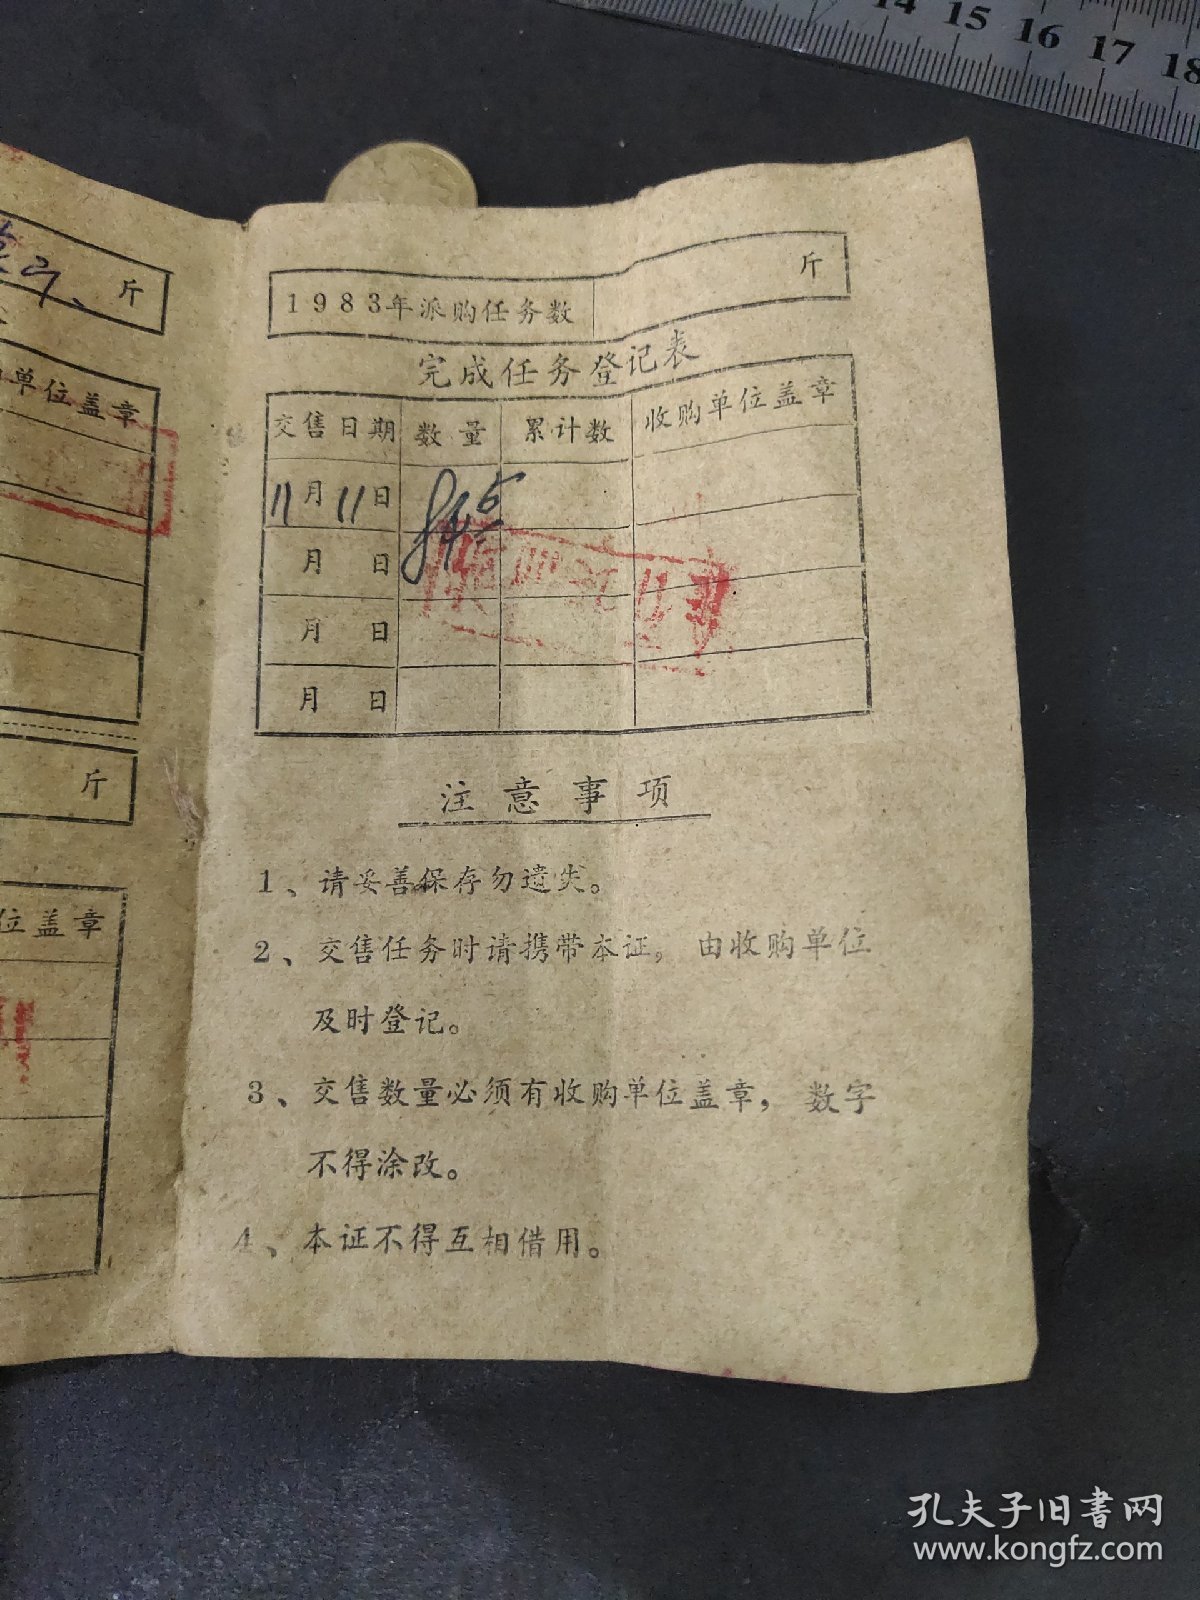 14 15 16 17 18
斤
单位盖章
斤
位盖章
1983年派购任务数 斤
完成任务登记表
交售日期 数量 累计数 收购单位盖章
11月11日 845
月 日
月 日
月 日
注意事项
1、请妥善保存勿遗失。
2、交售任务时请携带本证，由收购单位
及时登记。
3、交售数量必须有收购单位盖章，数字
不得涂改。
4、本证不得互相借用。
孔夫子旧书网
www.kongfz.com